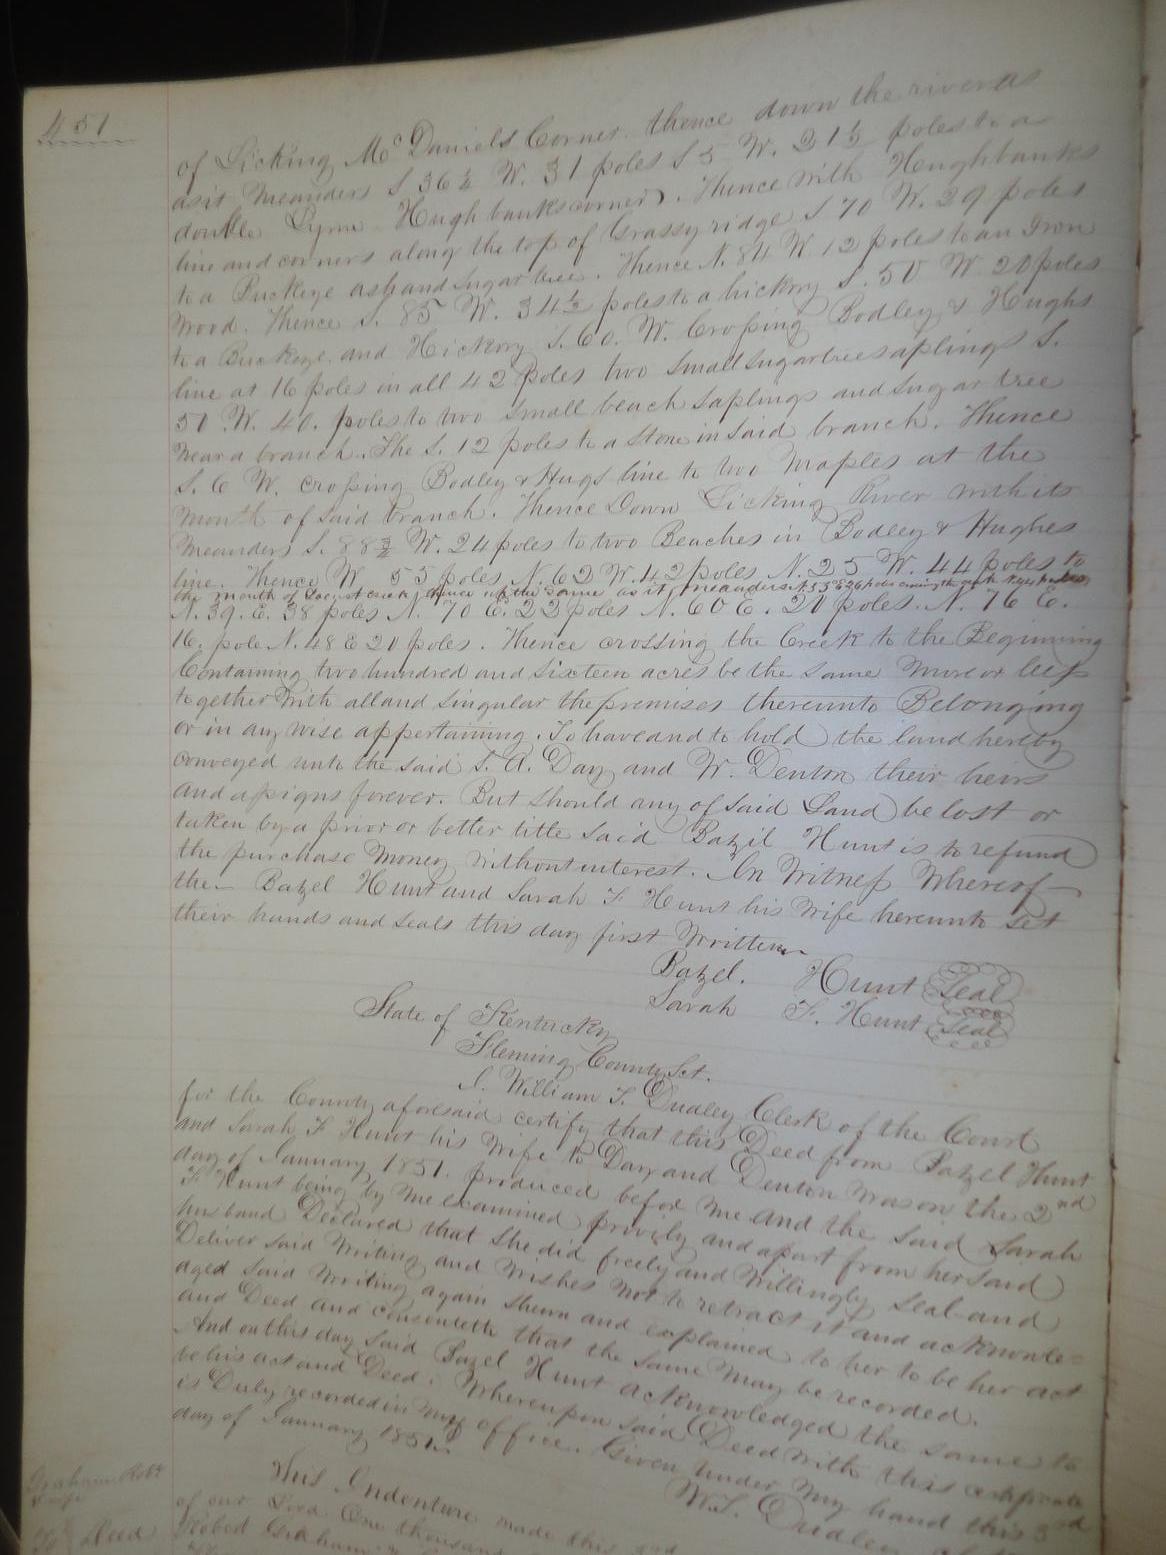 451
of Licking McDaniels Corner. thence down the river as
as it Meanders S 36½ W. 31 poles S 5 W. 21½ poles to a
double Lynn Hughbanks corner. Thence with Hughbanks
line and corners along the top of Grassy ridge S 70 W. 29 poles
to a Buckeye ash and Sugar tree. Thence N. 84 W 12 poles to an Iron
Wood. Thence S. 85 W. 34½ poles to a hickory S. 50 W. 20 poles
to a Buckeye and Hickory S. 60. W. Crossing Bodley & Hughs
line at 16 poles in all 42 poles two Small sugartree saplings S.
50 W. 40. poles to two small beach saplings and sugar tree
near a branch. The S. 12 poles to a Stone in said branch. Thence
S. 6 W. crossing Bodley & Hugs line to two Maples at the
Mouth of said branch. Thence Down Licking River with its
Meanders S. 88¾ W. 24 poles to two Beaches in Bodley & Hughes
line. Thence W. 55 poles N. 62 W. 42 poles N. 25 W. 44 poles to
the mouth of Locust creek, thence up the same as it meanders
N. 39. E. 38 poles N. 70 E. 22 poles N. 60 E. 20 poles. N. 76 E.
16. pole N. 48 E 20 poles. Thence crossing the Creek to the Beginning
Containing two hundred and sixteen acres be the same More or less
together with all and singular the premises thereunto Belonging
or in any wise appertaining. To have and to hold the land hereby
conveyed unto the said S. A. Day and W. Denton their heirs
and assigns forever. But should any of said Land be lost or
taken by a prior or better title said Bazil Hunt is to refund
the purchase Money without interest. In Witness Whereof
the Bazel Hunt and Sarah F Hunt his Wife hereunto set
their hands and seals this day first Written
Bazel. Hunt Seal
Sarah F. Hunt Seal
State of Kentucky
Fleming County Sct.
I. William T. Dudley Clerk of the Court
for the County aforesaid certify that this Deed from Bazel Hunt
and Sarah F Hunt his Wife to Day and Denton was on the 2nd
day of January 1851. produced before me and the said Sarah
F Hunt being by me examined privily and apart from her said
husband Declared that she did freely and Willingly seal and
Deliver said Writing and Wishes Not to retract it and acknowle=
aged said Writing again shewn and explained to her to be her act
and Deed and consenteth that the same may be recorded.
And on this day said Bazel Hunt acknowledged the same to
be his act and Deed. Whereupon said Deed with this certificate
is Duly recorded in my office. Given under my hand this 3rd
day of January 1851.
W.T. Dudley
Graham Robt
& wife
To } Deed
This Indenture made this
of our Lord One thousand
Robert Graham